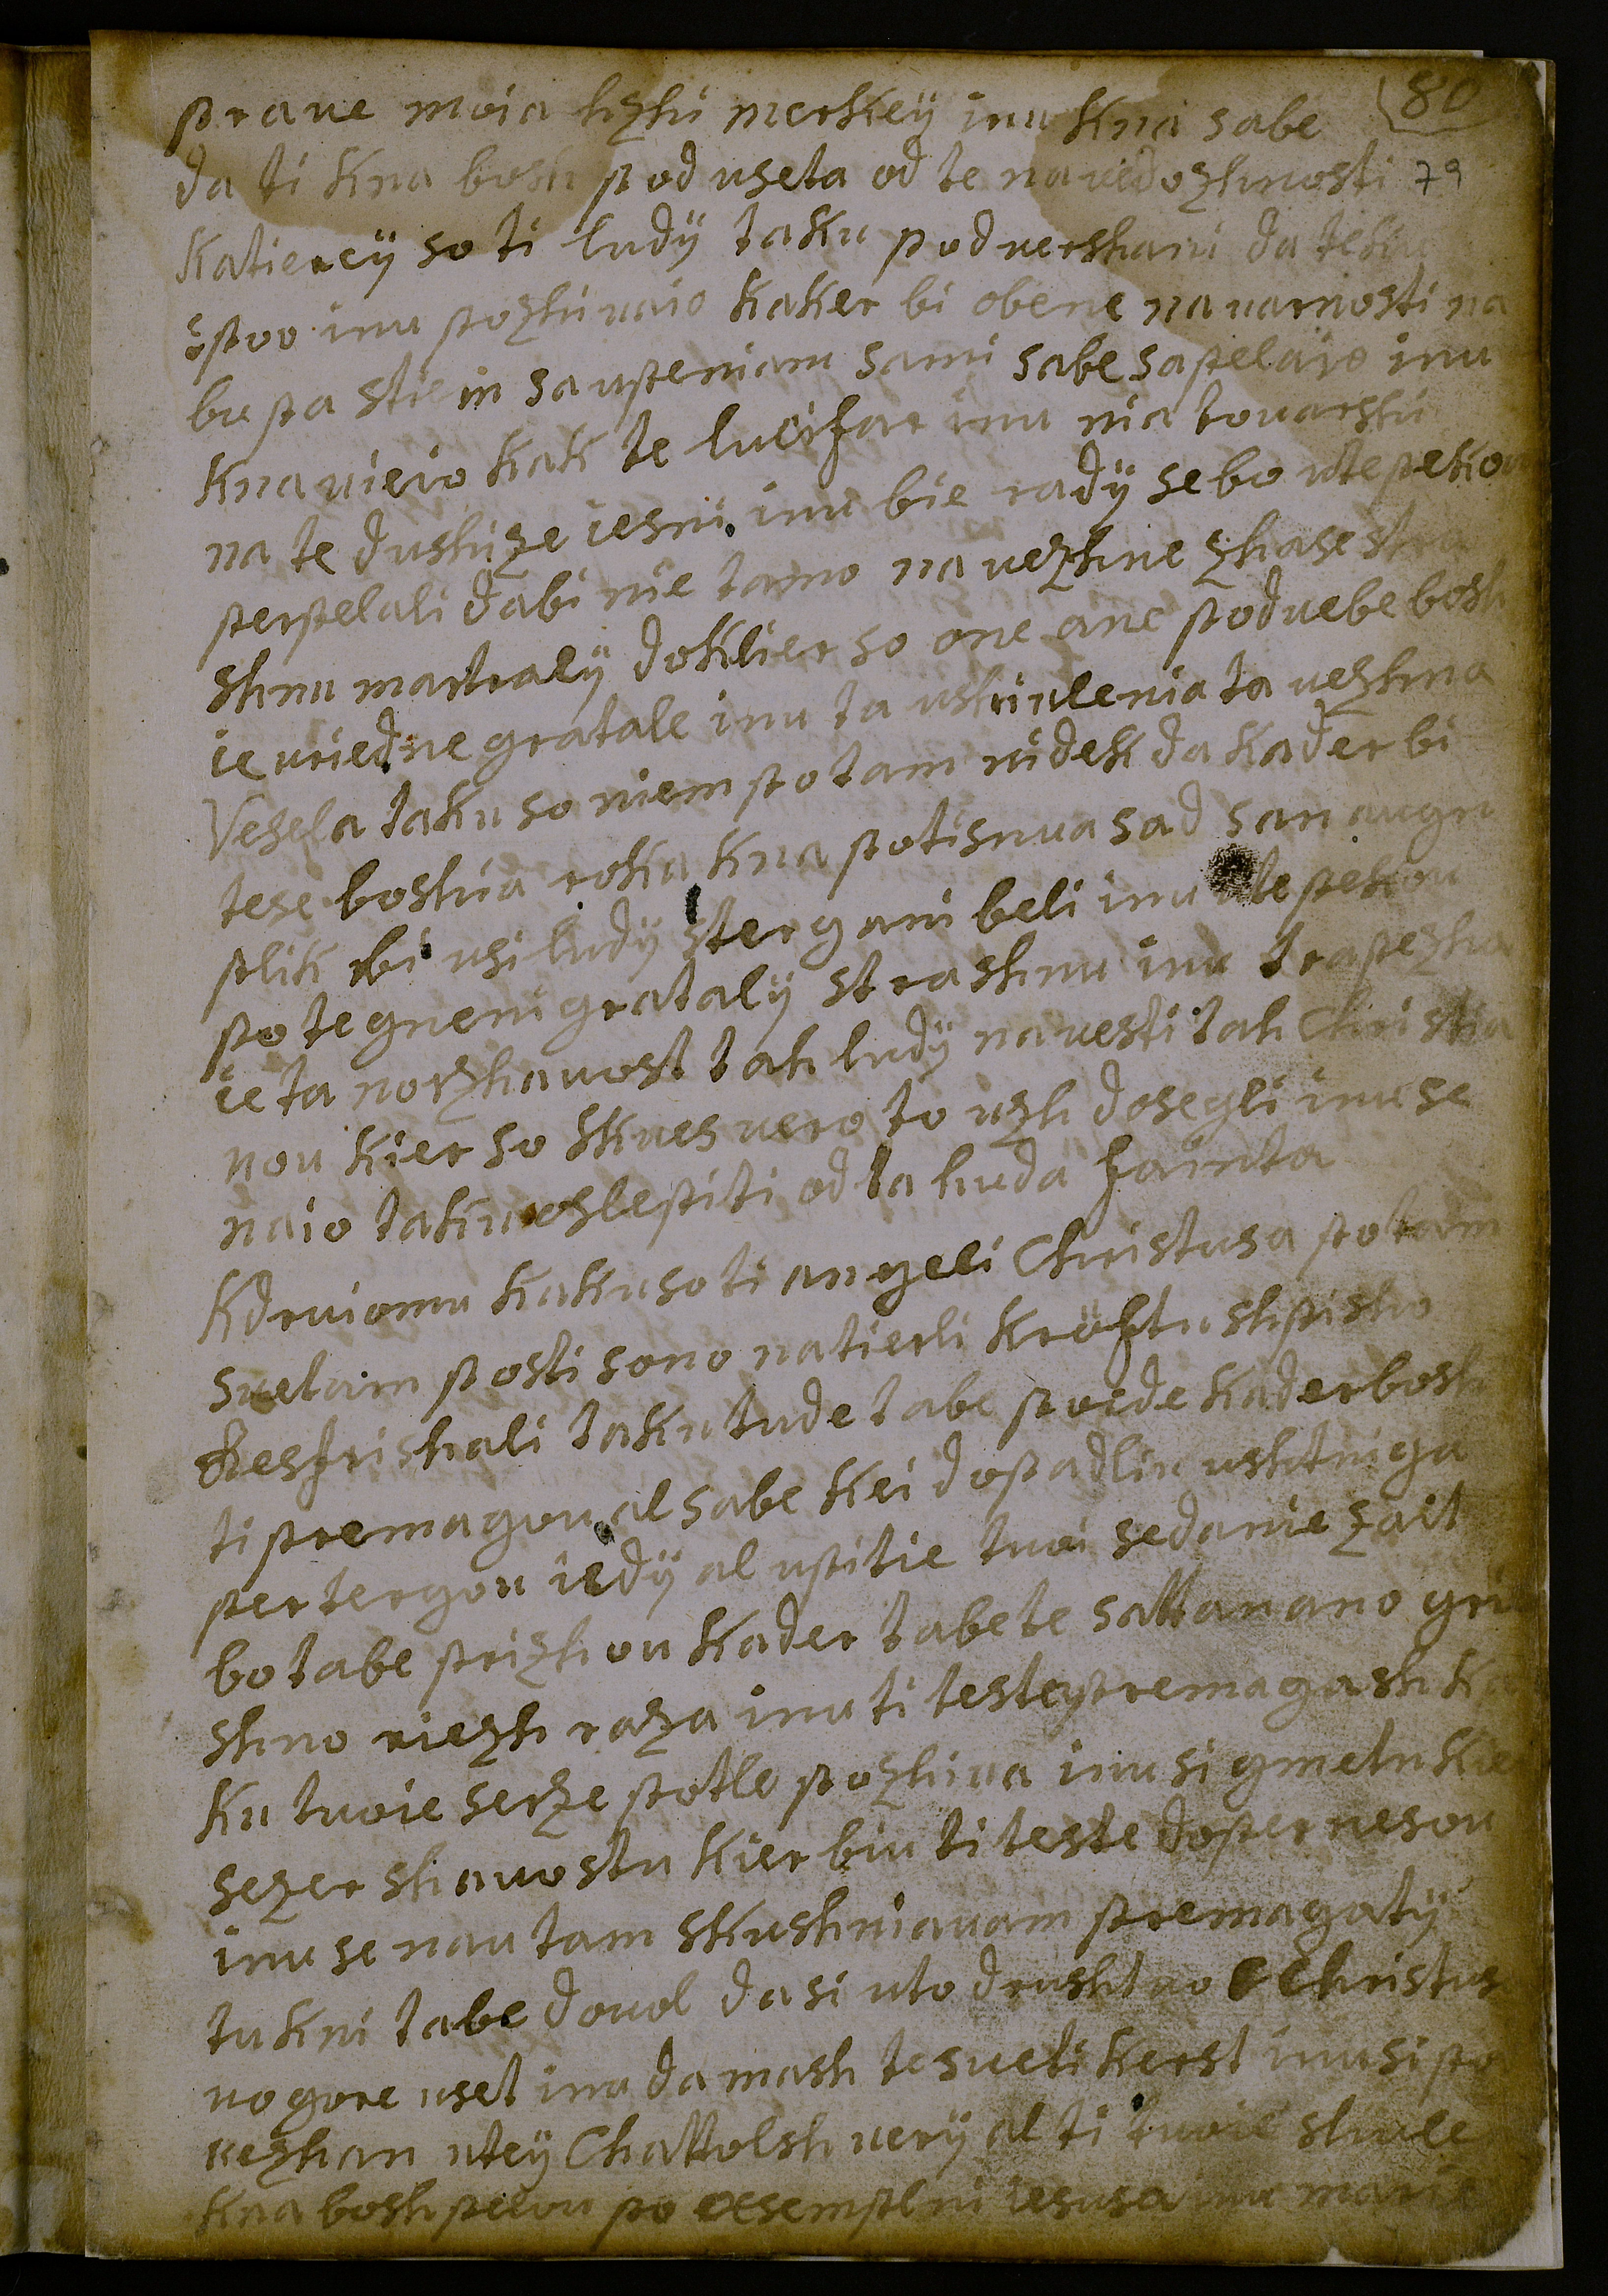 praue moia hzhi merkey inu kna sabe 80
da ti kna bosh pod useta od te navedozhnosti 79
katierey so ti ludÿ taku poduershani da tehu
spvo inu pozhivaio kaker bi obene navarnosti na
bu pa stiem savpeniam sami sabe sapelaio inu
kna vieio kak te lucifar inu nia tovarshi
na te dushize iesni inu bie radÿ sebo vte pekou
perpelali dabi nie tamo na vezhne zhase stra
shnu martralÿ doklier so one ane pod nebe bosh
ie uriedne gratale inu ta ushivlenia ta vezhna
Vesela taku so niem potam videk da kader bi
tese boshia roka kna potisnva sad san augn
plik bi usi ludÿ stergani beli inu vte pekou
potegneni gratalÿ strashnu inu trapezhn
ie ta norzhavost tah ludÿ navesti tah Christia
nou kier so skues vero to uzh dosegli inu se
naio taku oslepiti od ta huda fainta
Kdruiomu kaku so ti angeli Christusa potam
suetam postisono natierli kröftu shpisho
Resfrishali taku tude tabe poide kader bosh
ti premagou al sabe kei dopadliu ushtniga
pertergou iedÿ al vpitie tvoi sedanie zait
bo tabe prizhou kader tabe te sattan ano gri
shno riezh raza inu ti teste premagash ka
ku tuoie serze potle pozhiva inu si gmelu kie
sezer shavostu kier biu ti teste doper nesou
inu se nau tam skushniavam premagatÿ
tu kni tabe dovol da si vto drushtvo Christus
vo gore uset inu da mash te sveti kerst inu si po
vezhan vtey Chattolsh verÿ al ti tvoie shvle
kna bosh pelou po exsemplni iesusa inu marie